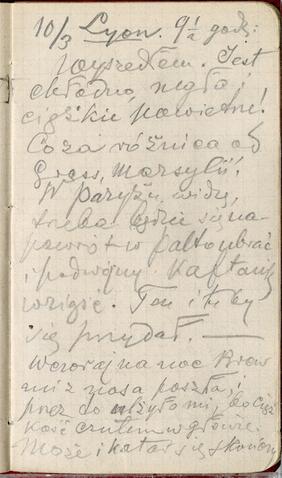 10/3 Lyon. 9½ godz:
wyszedłem. Jest
chłodno, mgła i
ciężkie powietrze!
Co za różnica od
Grass, Marsylii!
W Paryżu, widzę,
trzeba będzie się na-
powrót w palto ubrać
i podwójny kaftanik
wziąść. Ten i tu by
się przydał. —
Wczoraj na noc krew
mi z nosa poszła,
przez to ulżyło mi, bo cięż
kość czułem w głowie.
Może i katar się skończy